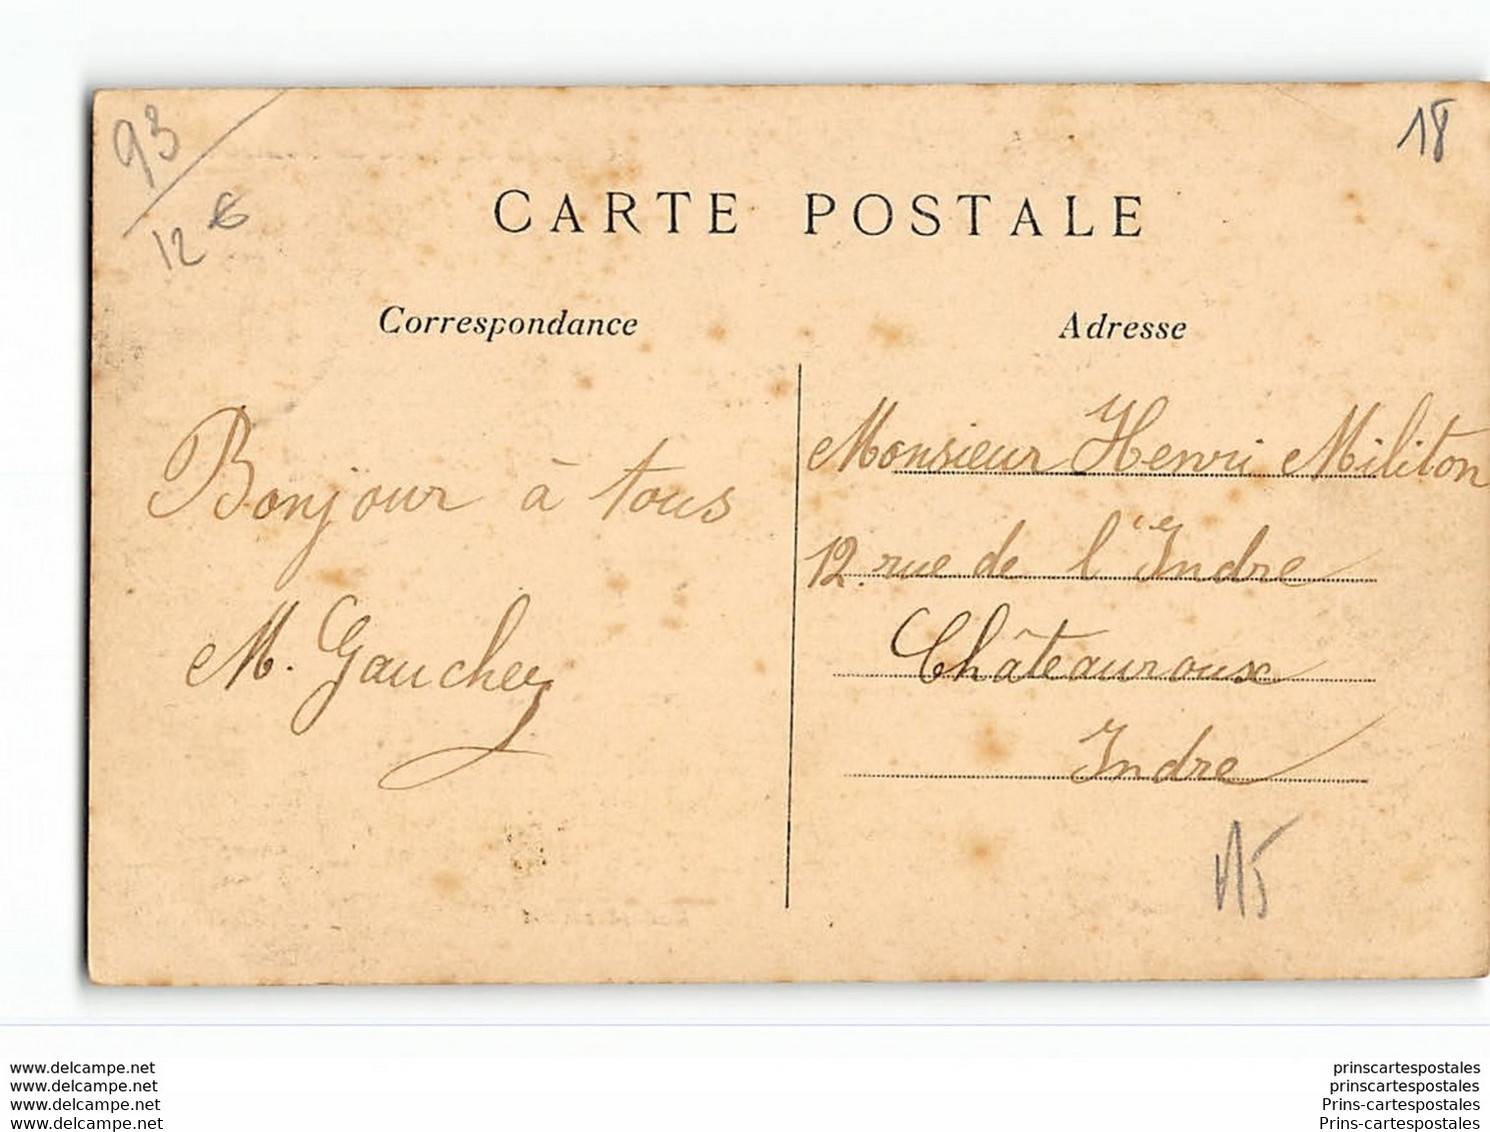 93
12 €
18
CARTE POSTALE
Correspondance
Adresse
Bonjour à tous
M. Gauchey
Monsieur Henri Militon
12. rue de l'Indre
Châteauroux
Indre
www.delcampe.net
www.delcampe.net
www.delcampe.net
www.delcampe.net
prinscartespostales
prinscartespostales
Prins-cartespostales
Prins-cartespostales